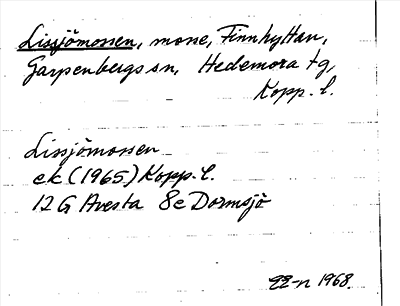 Lissjömossen, mosse, Finnhyttan,
Garpenbergs sn, Hedemora tg,
Kopp. l.
Lissjömossen
ek (1965) Kopp. l.
12 G Avesta 8e Dormsjö
1968